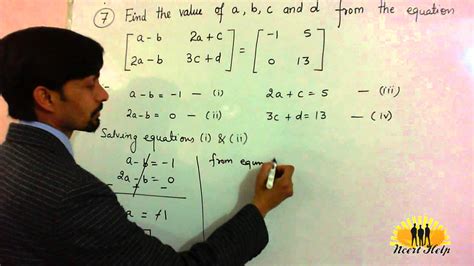 7 Find the value of a, b, c and d from the equation
[a-b 2a+c] = [-1 5]
[2a-b 3c+d] [0 13]
a-b = -1 — (i) 2a+c = 5 — (iii)
2a-b = 0 — (ii) 3c+d = 13 — (iv)
Solving equations (i) & (ii)
a-b = -1 from equn
2a-b = 0
- - -
a = -1
Ncert Help